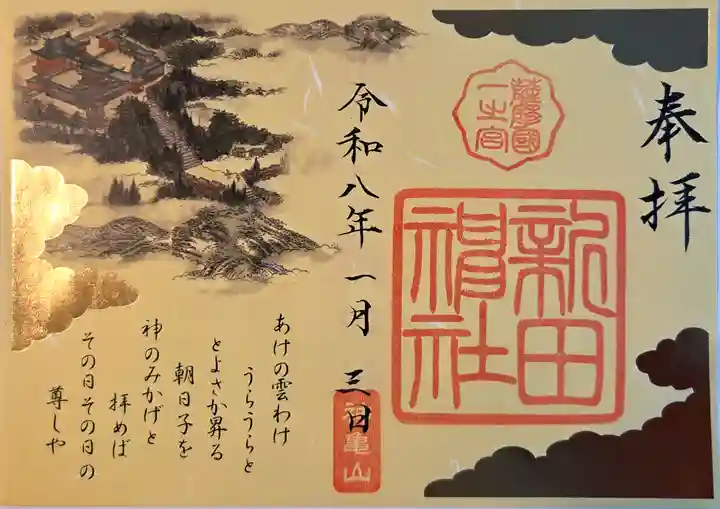 奉拝
薩摩國
一之宮
新田
神社
令和八年 一月 三日
神亀山
あけの雲わけ
うらうらと
とよさか昇る
朝日子を
神のみかげと
拝めば
その日その日の
尊しや